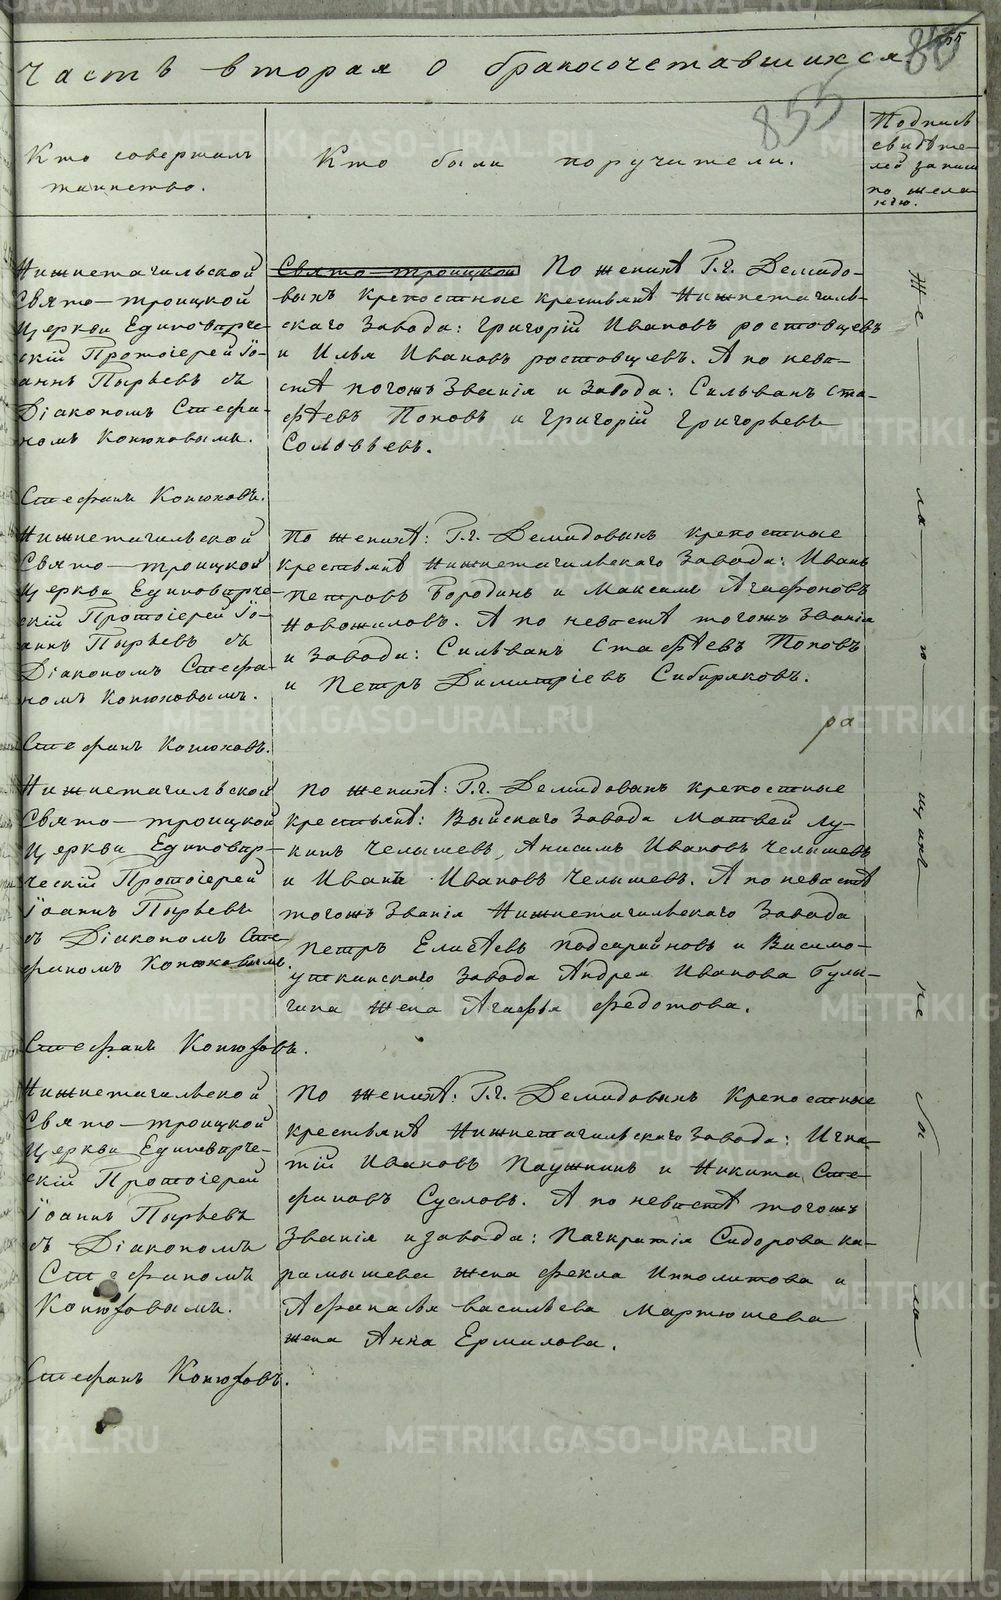 55
855
Часть вторая о бракосочетавшихся
Кто совершалъ
таинство.
Кто были поручители.
Подпись
свидѣте-
лей записи
по жела-
нію.
Нижнетагильской
Свято-троицкой
Церкви Единовѣрче-
скій Протоіерей Іо-
аннъ Пырьевъ съ
Діакономъ Стефа-
номъ Конюховымъ.
Стефанъ Конюховъ.
Свято-троицкой По женихѣ Г.г. Демидо-
выхъ крепостные крестьянѣ Нижнетагиль-
скаго Завода: Григорій Ивановъ ростовщевъ
и Илья Ивановъ ростовщевъ. А по неве-
стѣ тогожъ Званія и Завода: Сильванъ Ста-
фѣевъ Поповъ и Григорій Григорьевъ
Соловьевъ.
Нижнетагильской
Свято-троицкой
Церкви Единовѣрче-
скій Протоіерей Іо-
аннъ Пырьевъ съ
Діакономъ Стефа-
номъ Конюховымъ.
Стефанъ Конюховъ.
По женихѣ: Г.г. Демидовыхъ крепостные
крестьянѣ Нижнетагильскаго Завода: Иванъ
Петровъ Бородинъ и Максимъ Агафоновъ
Новожиловъ. А по невестѣ тогожъ Званія
и Завода: Сильванъ Стафѣевъ Поповъ
и Петръ Димитріевъ Сибиряковъ.
ра
Нижнетагильской
Свято-троицкой
Церкви Единовѣр-
ческій Протоіерей
Іоаннъ Пырьевъ
съ Діакономъ Сте-
фаномъ Конюховымъ.
Стефанъ Конюховъ.
По женихѣ: Г.г. Демидовыхъ крепостные
крестьянѣ: Выйскаго Завода Матвей Лу-
кинъ Челышевъ, Анисимъ Ивановъ Челышевъ
и Иванъ Ивановъ Челышевъ. А по невестѣ
тогожъ Званія Нижнетагильскаго Завода
Петръ Елисѣевъ Подсарайновъ и Висимо-
уткинскаго Завода Андрея Иванова Булы-
гина жена Агафья Федотова.
Нижнетагильской
Свято-троицкой
Церкви Единовѣрче-
скій Протоіерей
Іоаннъ Пырьевъ
съ Діакономъ
Стефаномъ
Конюховымъ.
Стефанъ Конюховъ.
По женихѣ: Г.г. Демидовыхъ крепостные
крестьянѣ Нижнетагильскаго Завода: Игна-
тій Ивановъ Паужнинъ и Никита Сте-
фановъ Сусловъ. А по невестѣ тогожъ
Званія и завода: Панкратія Сидорова ка-
рамышева жена Фекла Ипполитова и
Афанасья васильева Мартюшева
жена Анна Ермилова.
Же ла ю щихъ не бы ло.